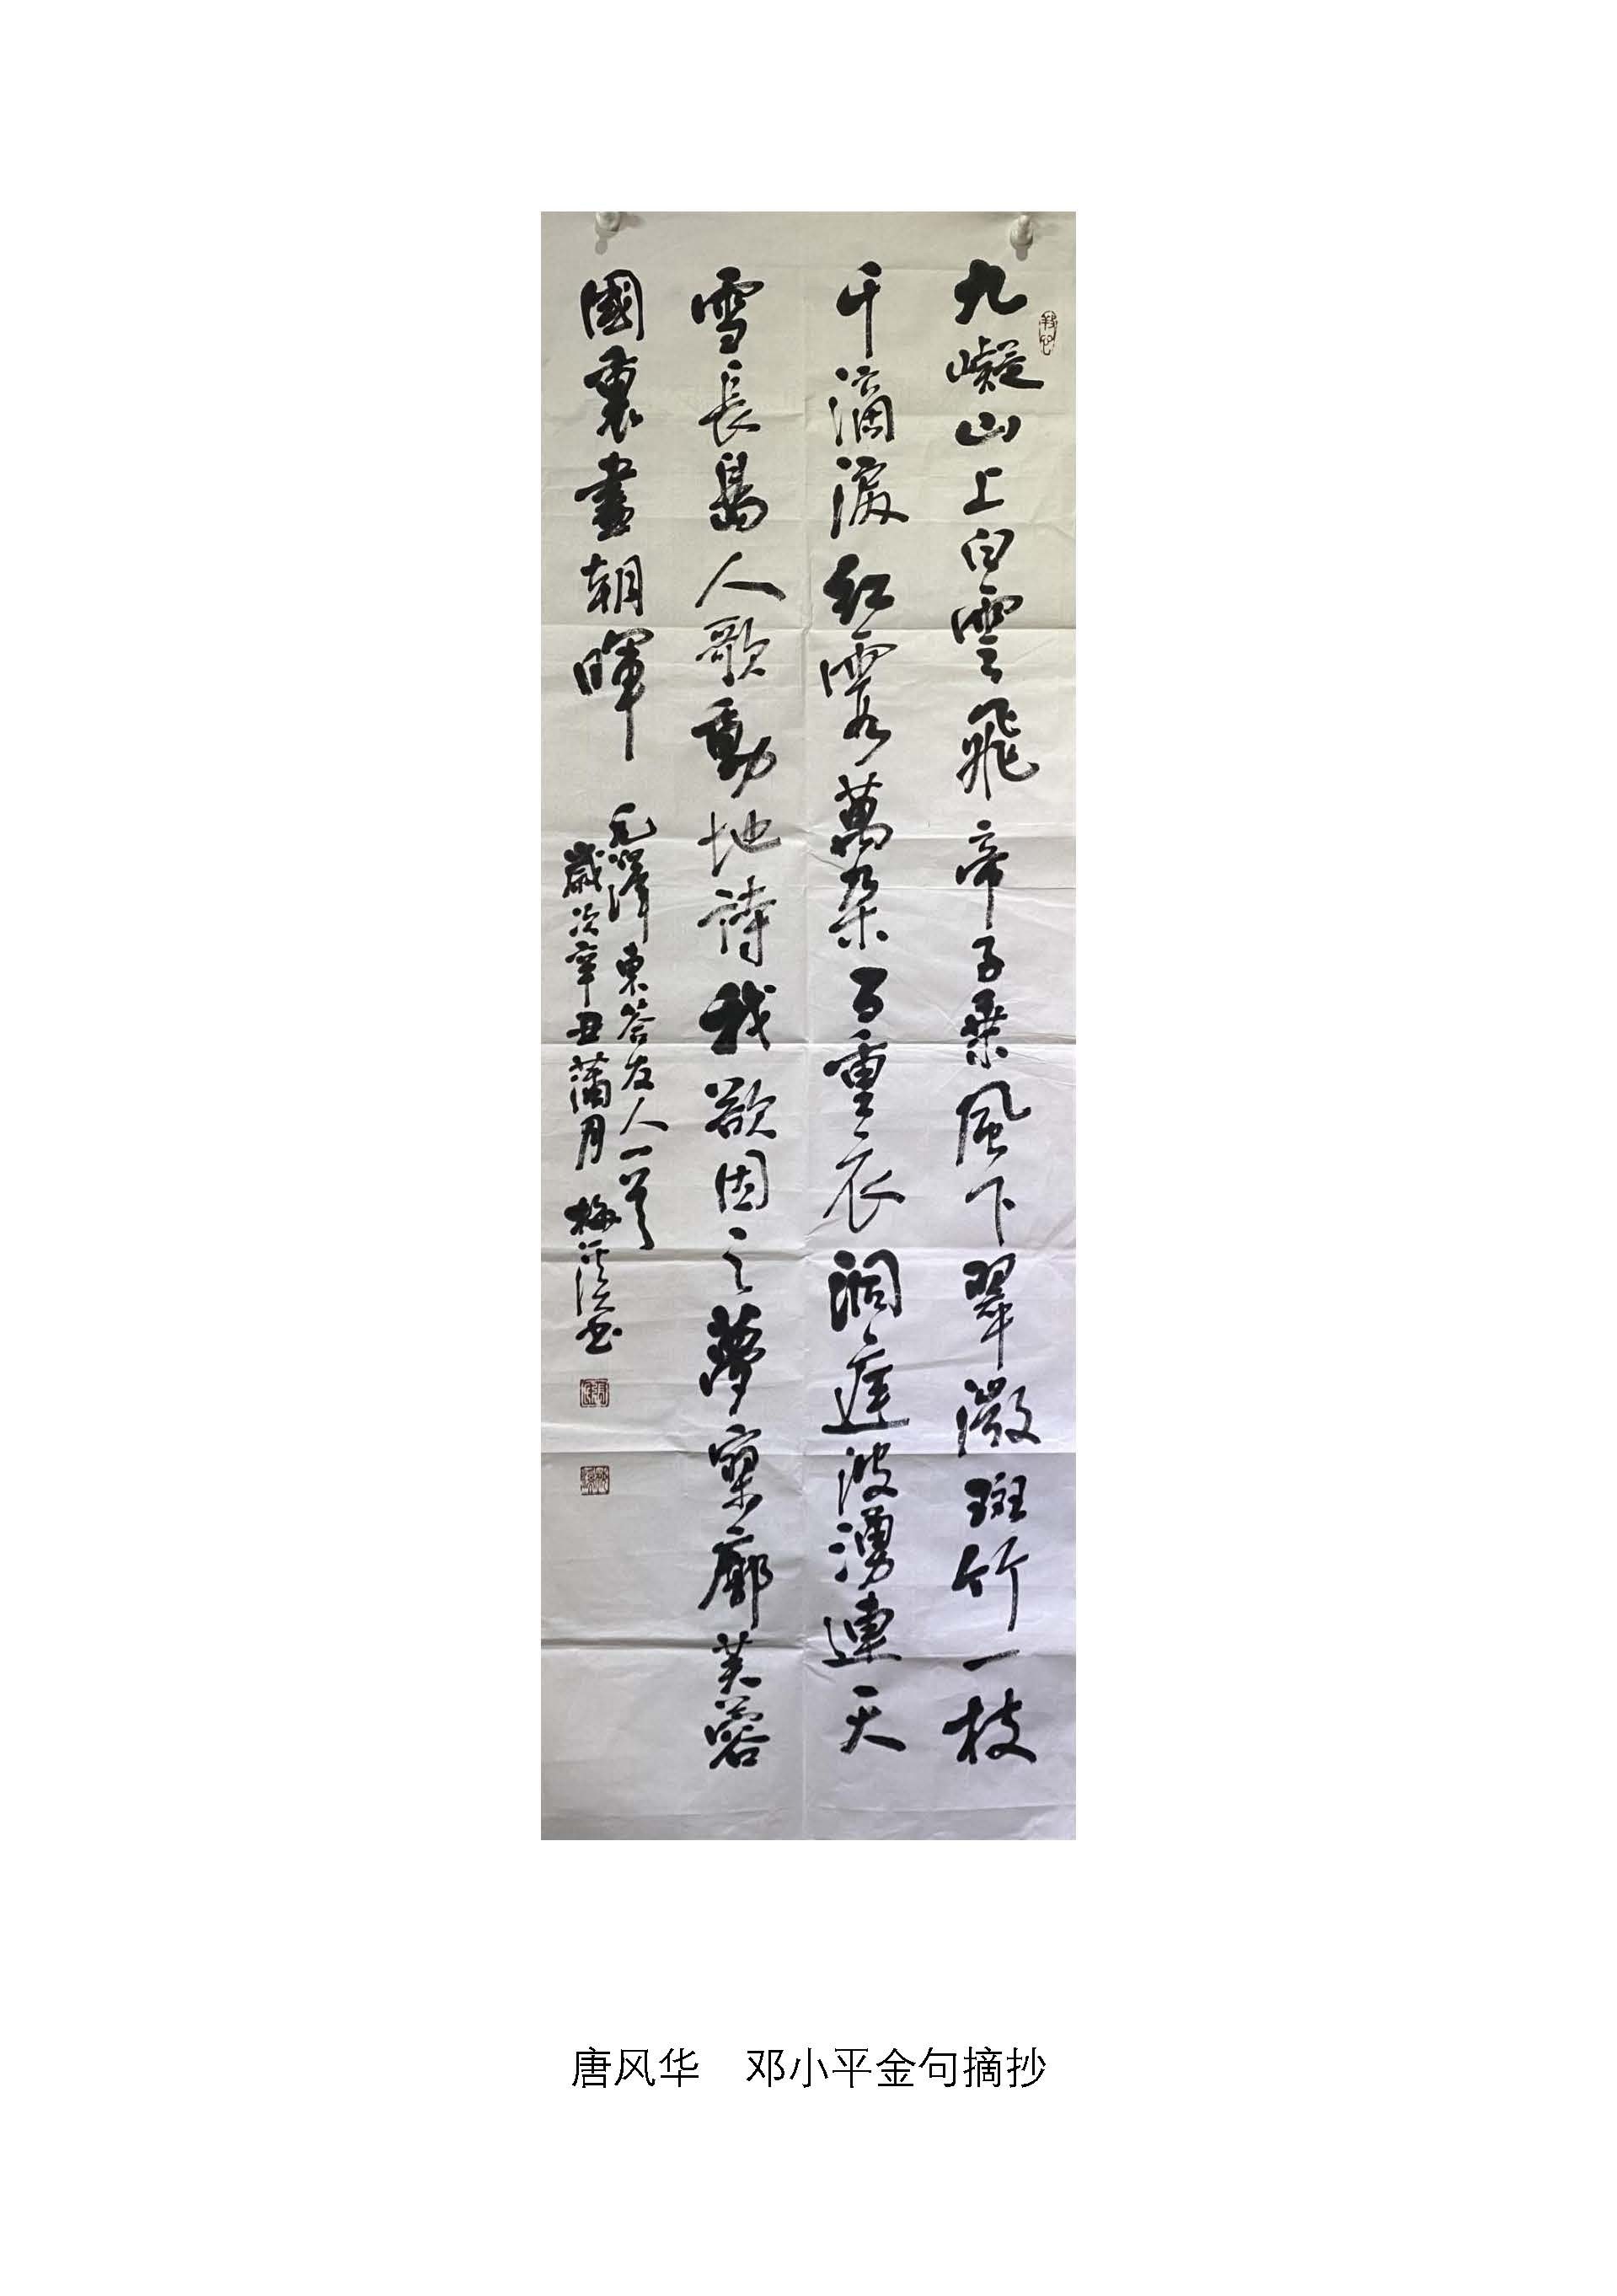 九嶷山上白雲飛帝子乘風下翠微斑竹一枝
千滴淚紅霞萬朶百重衣洞庭波湧連天
雪長島人歌動地詩我欲因之夢寥廓芙蓉
國裏盡朝暉
毛澤東答友人一首
歲次辛丑蒲月 梅溪书
唐风华　邓小平金句摘抄